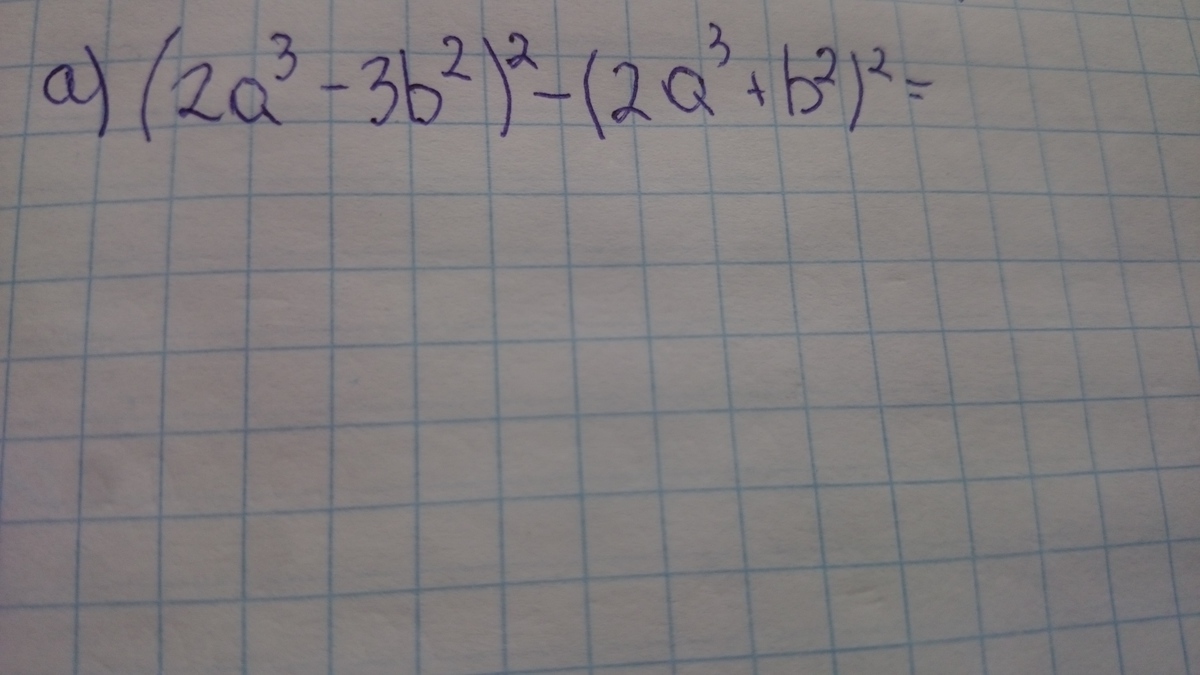 а) (2a³ - 3b²)² - (2a³ + b²)² =